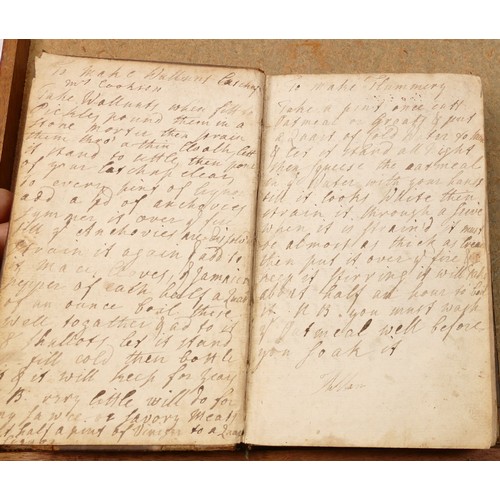 To make Wallnut Catchup
Mrs Cookson
Take Wallnuts when fitt to
Pickle, pound them in a
Stone morter then strain
them thro' a thin Cloath, lett
it stand to settle, then pour
of your Catchup clear
to every pint of liquor
add a pd of anchovies
Symmer it over
till ye Anchovies are disolv'd
strain it again & add to
it mace Cloves, & Jamaica
pepper of each half a
of an ounce boal these
well together & ad to it
shallots let it stand
till cold then bottle
it & it will keep for years
NB very little will do for
any sawce or savory Meats
half a pint of to a
To make Flummery
Take a pint once cutt
Oatmeal or Groats & put
a Quart of Cold Water to
& let it stand all Night
then squese the oatmeal
in ye Water with your hands
till it looks White then
strain it through a sieve
when it is strain'd it must
be almost as thick as Cream
then put it over ye fire
keep it stirring it will take
about half an hour to boal
it. N B you must wash
ye Oatmeal well before
you soak it